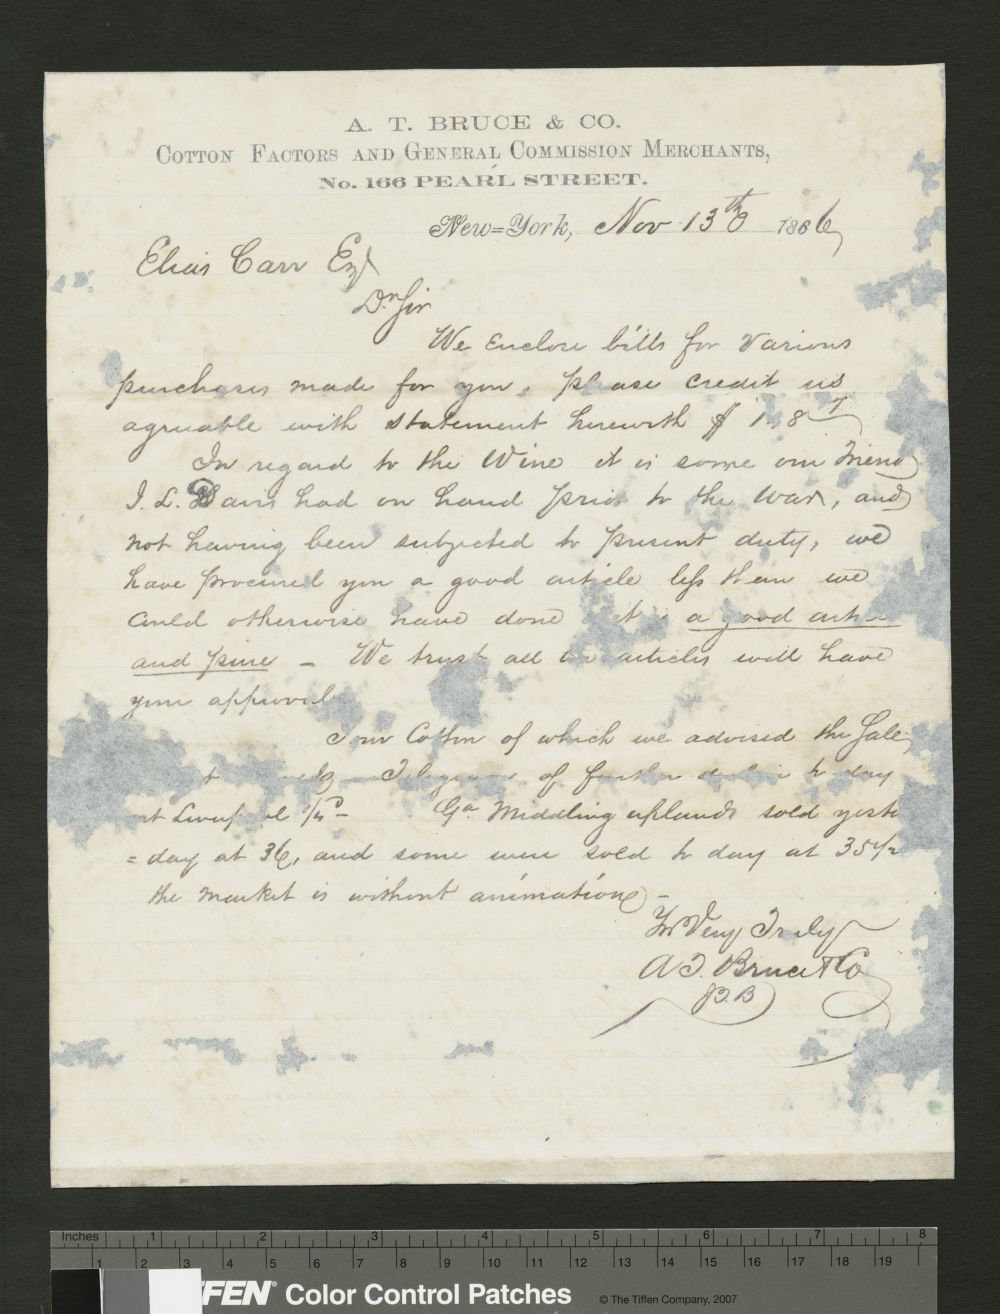 A. T. BRUCE & CO.
COTTON FACTORS AND GENERAL COMMISSION MERCHANTS,
No. 166 PEARL STREET.
New=York, Nov 13th 1866,
Elias Carr Esq
Dr Sir
We Enclose bills for various
purchases made for you. please credit us
agreeable with statement herewith $
In regard to the Wine it is some our Friend
J. L. Davis had on hand prior to the War, and
not having been subjected to present duty, we
have procured you a good article less than we
could otherwise have done it is a good article
and pure - We trust all the articles will have
your approval
Your Cotton of which we advised the Sale,
Telegrams of further decline to day
at Liverpool
Ga Middling uplands sold yester
=day at 36, and some were sold to day at 35 1/2
the market is without animation -
Yrs Very Truly
A T. Bruce & Co
J.B
Inches 1 2 3 4 5 6 7 8
1 2 3 4 5 6 7 8 9 10 11 12 13 14 15 16 17 18 19
FFEN® Color Control Patches © The Tiffen Company, 2007